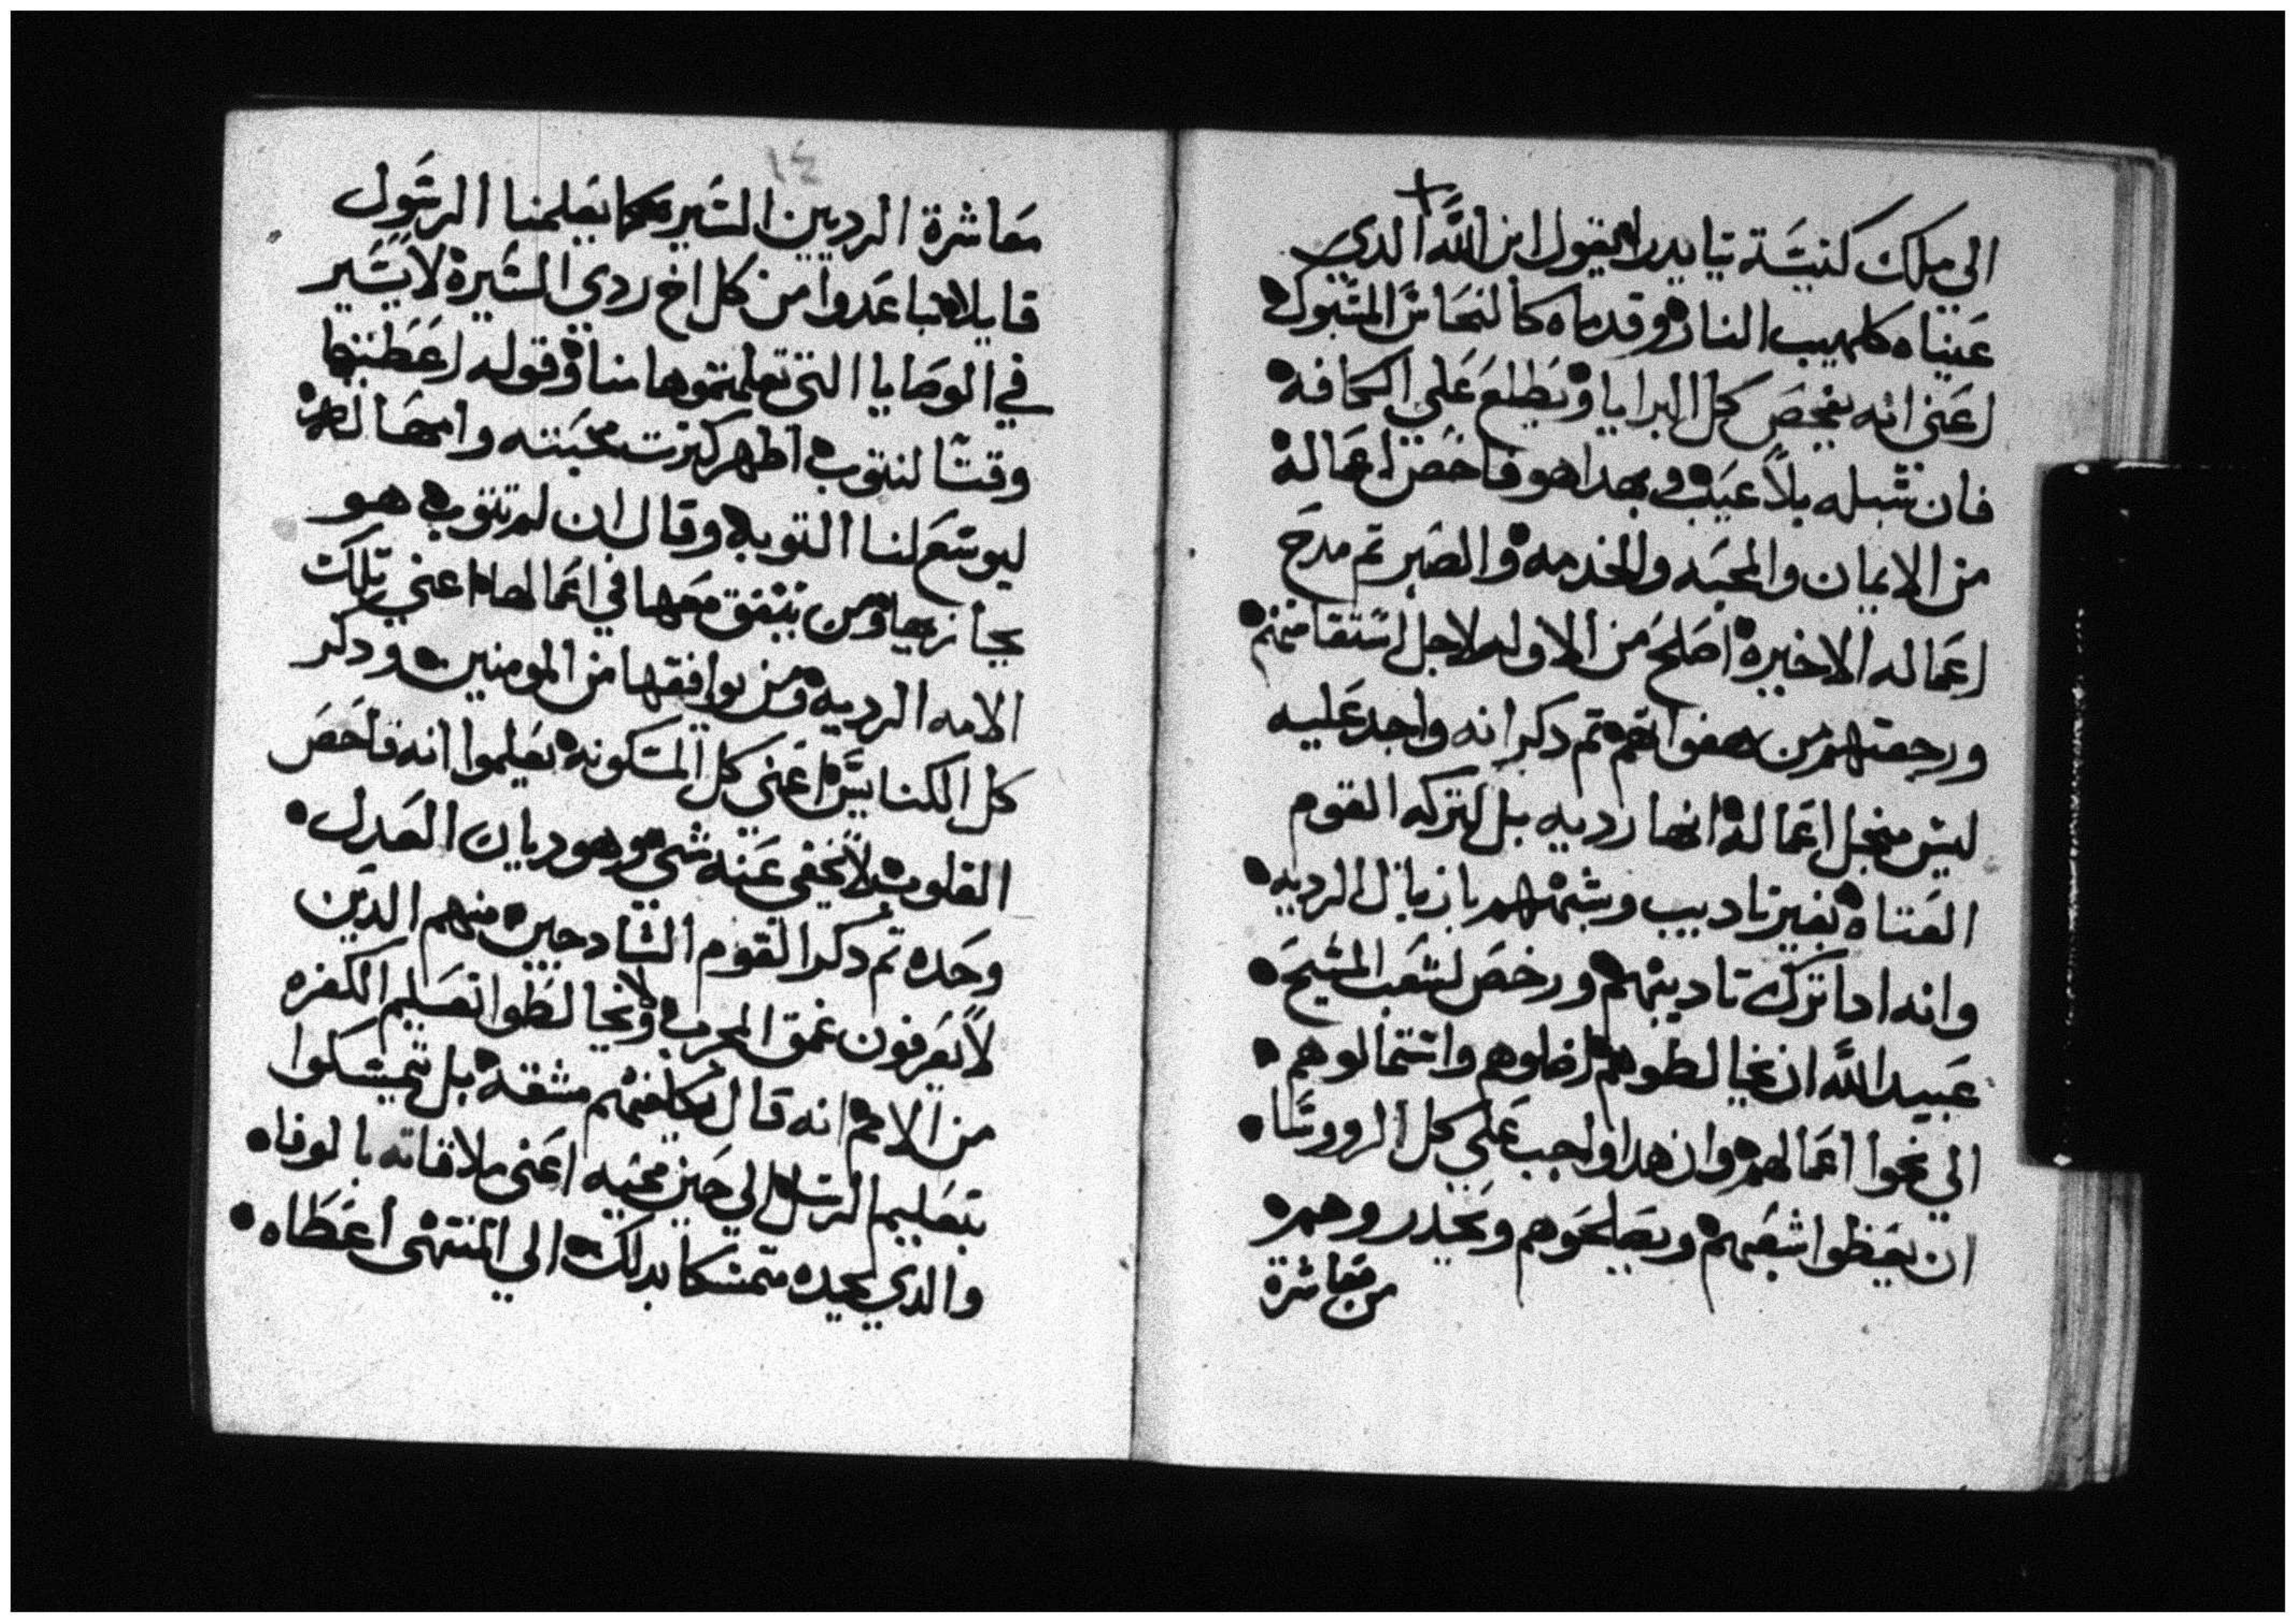 الى ملك كنيسة تيايدرا يقول ابن الله الدي
عيناه كلهيب النار وقدماه كالنحاس المسبوك
اعنى انه يفحص كل البرايا ويطلع على الكافه
فان سبله بلا عيب وبهدا هو فاحص اعماله
من الايمان والمحبه والخدمه والصبر تم مدح
اعماله الاخيره اصلح من الاوله لاجل استقامتهم
ورجعتهم من هفواتهم تم دكر انه واجد عليه
ليس منجل اعماله انها رديه بل لتركه القوم
العتاه بغير تاديب وشبههم بازبال الرديه
وانه ادا ترك تاديبهم ورخص لشعب المسيح
عبيد الله ان يخالطوهم اضلوهم واستمالوهم
الي نحوا اعمالهم وان هدا واجب على كل الرووسا
ان يعظوا شعبهم ويصلحوهم ويحدروهم
من معاشرة
١٤
معاشرة الرديين السيره كما يعلمنا الرسول
قايلا تباعدوا من كل اخ ردى السيرة لا يسير
في الوصايا التي تعلمتموها منا وقوله اعطيتها
وقتا لتتوب اظهر كترت محبته وامهاله
ليوسع لنا التوبه وقال ان لم تتوب هو
يجازيها ومن يتفق معها في اعمالها اعني تلك
الامه الرديه ومن يوافقها من المومنين ودكر
كل الكنايس اعنى كل المسكونه يعلموا انه فاحص
القلوب لا يخفى عنه شي وهو ديان العدل
وحده تم دكر القوم السادجين منهم الدين
لا يعرفون عمق المجرب ولا يخالطوا تعليم الكفره
من الامم انه قال يكلفهم مشقه بل يتمسكوا
بتعليم الرسل الي حين مجيه اعنى ملاقاته بالوفاه
والدي يجده متمسكا بدلك الي المنتهى اعطاه